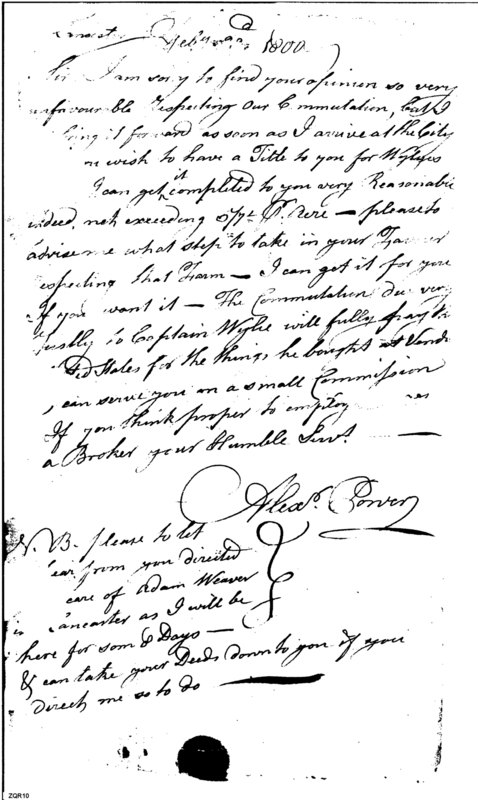 Feby 1800
Sir I am sorry to find your opinion so very
unfavourable respecting our Commutation, but I
bring it forward as soon as I arive at the City
wish to have a Title to you for Wylies
I can get it completed to you very Reasonable
indeed, not exceeding Pr. Acre — please to
advise me what step to take in your
respecting that Farm — I can get it for you
If you want it — The Commutation due very
justly to Captain Wylie will fully pay the
States for the things he bought at
, can serve you on a small Commission
If you think proper to employ me as
a Broker your Humble Servt. —
Alexr. Power
N. B. please to let
me hear from you directed
care of Adam Weaver
in Lancaster as I will be
here for som 8 Days —
& can take your Deeds down to you if you
direct me so to do —
ZQR10